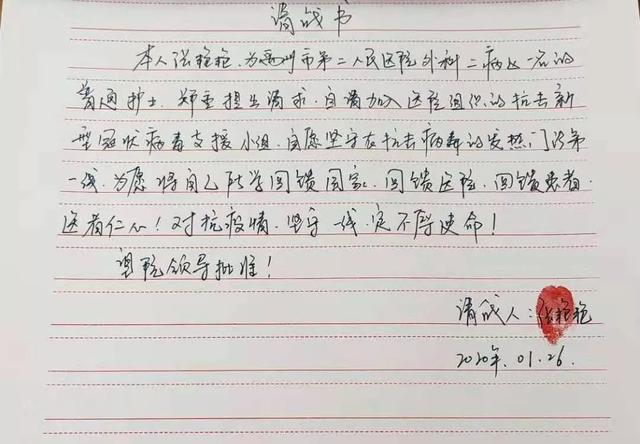 请战书
本人张艳艳，为禹州市第二人民医院外科二病区一名的
普通护士，郑重提出请求，自请加入医院组织的抗击新
型冠状病毒支援小组，自愿坚守在抗击病毒的发热门诊第
一线，为愿将自己所学回馈国家，回馈医院，回馈患者，
医者仁心！对抗疫情，坚守一线，定不辱使命！
望院领导批准！
请战人：张艳艳
2020年.01.26